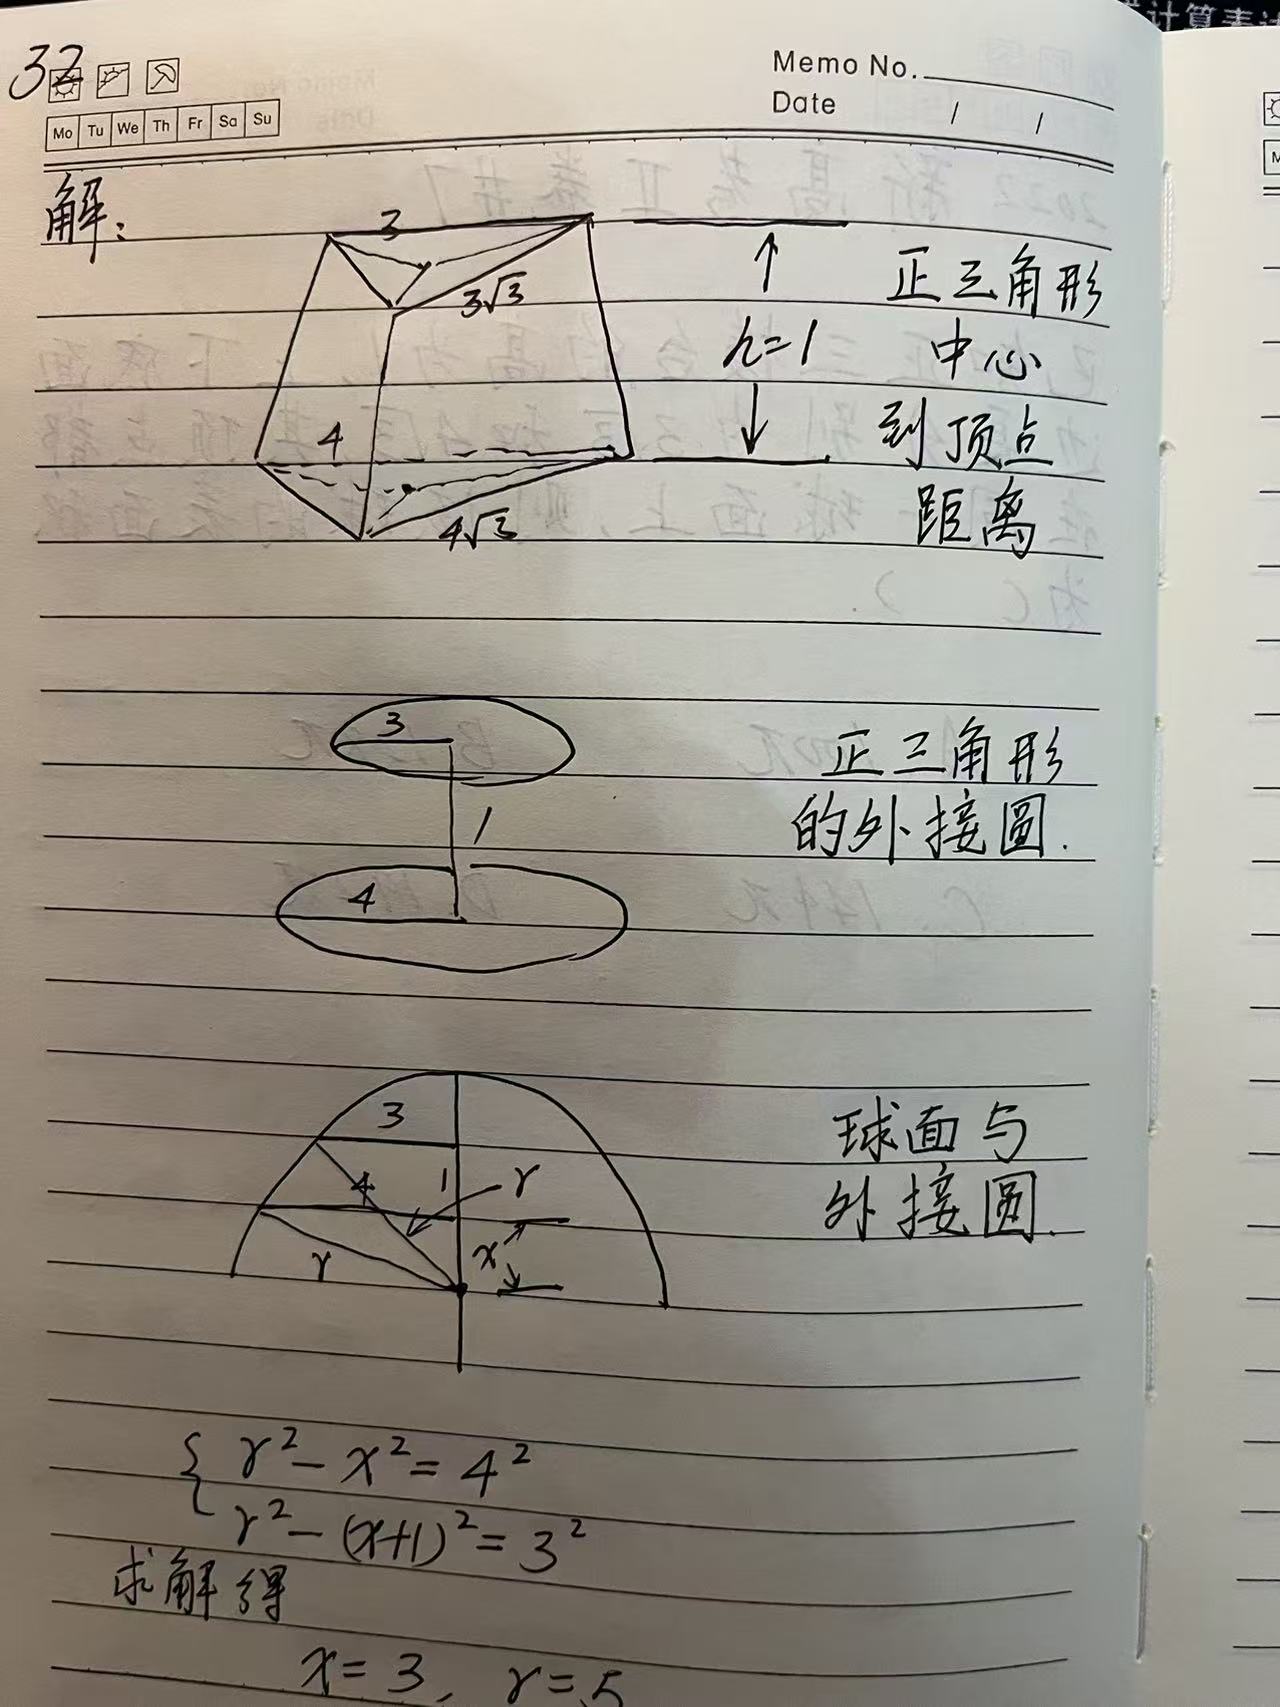 计算表达
32
Memo No.
Date / /
Mo Tu We Th Fr Sa Su
解:
3
3√3
h=1
4
4√3
正三角形
中心
到顶点
距离
3
1
4
正三角形
的外接圆.
3
4
1
r
r
x
球面与
外接圆.
r²-x²=4²
r²-(x+1)²=3²
求解得
x=3, r=5